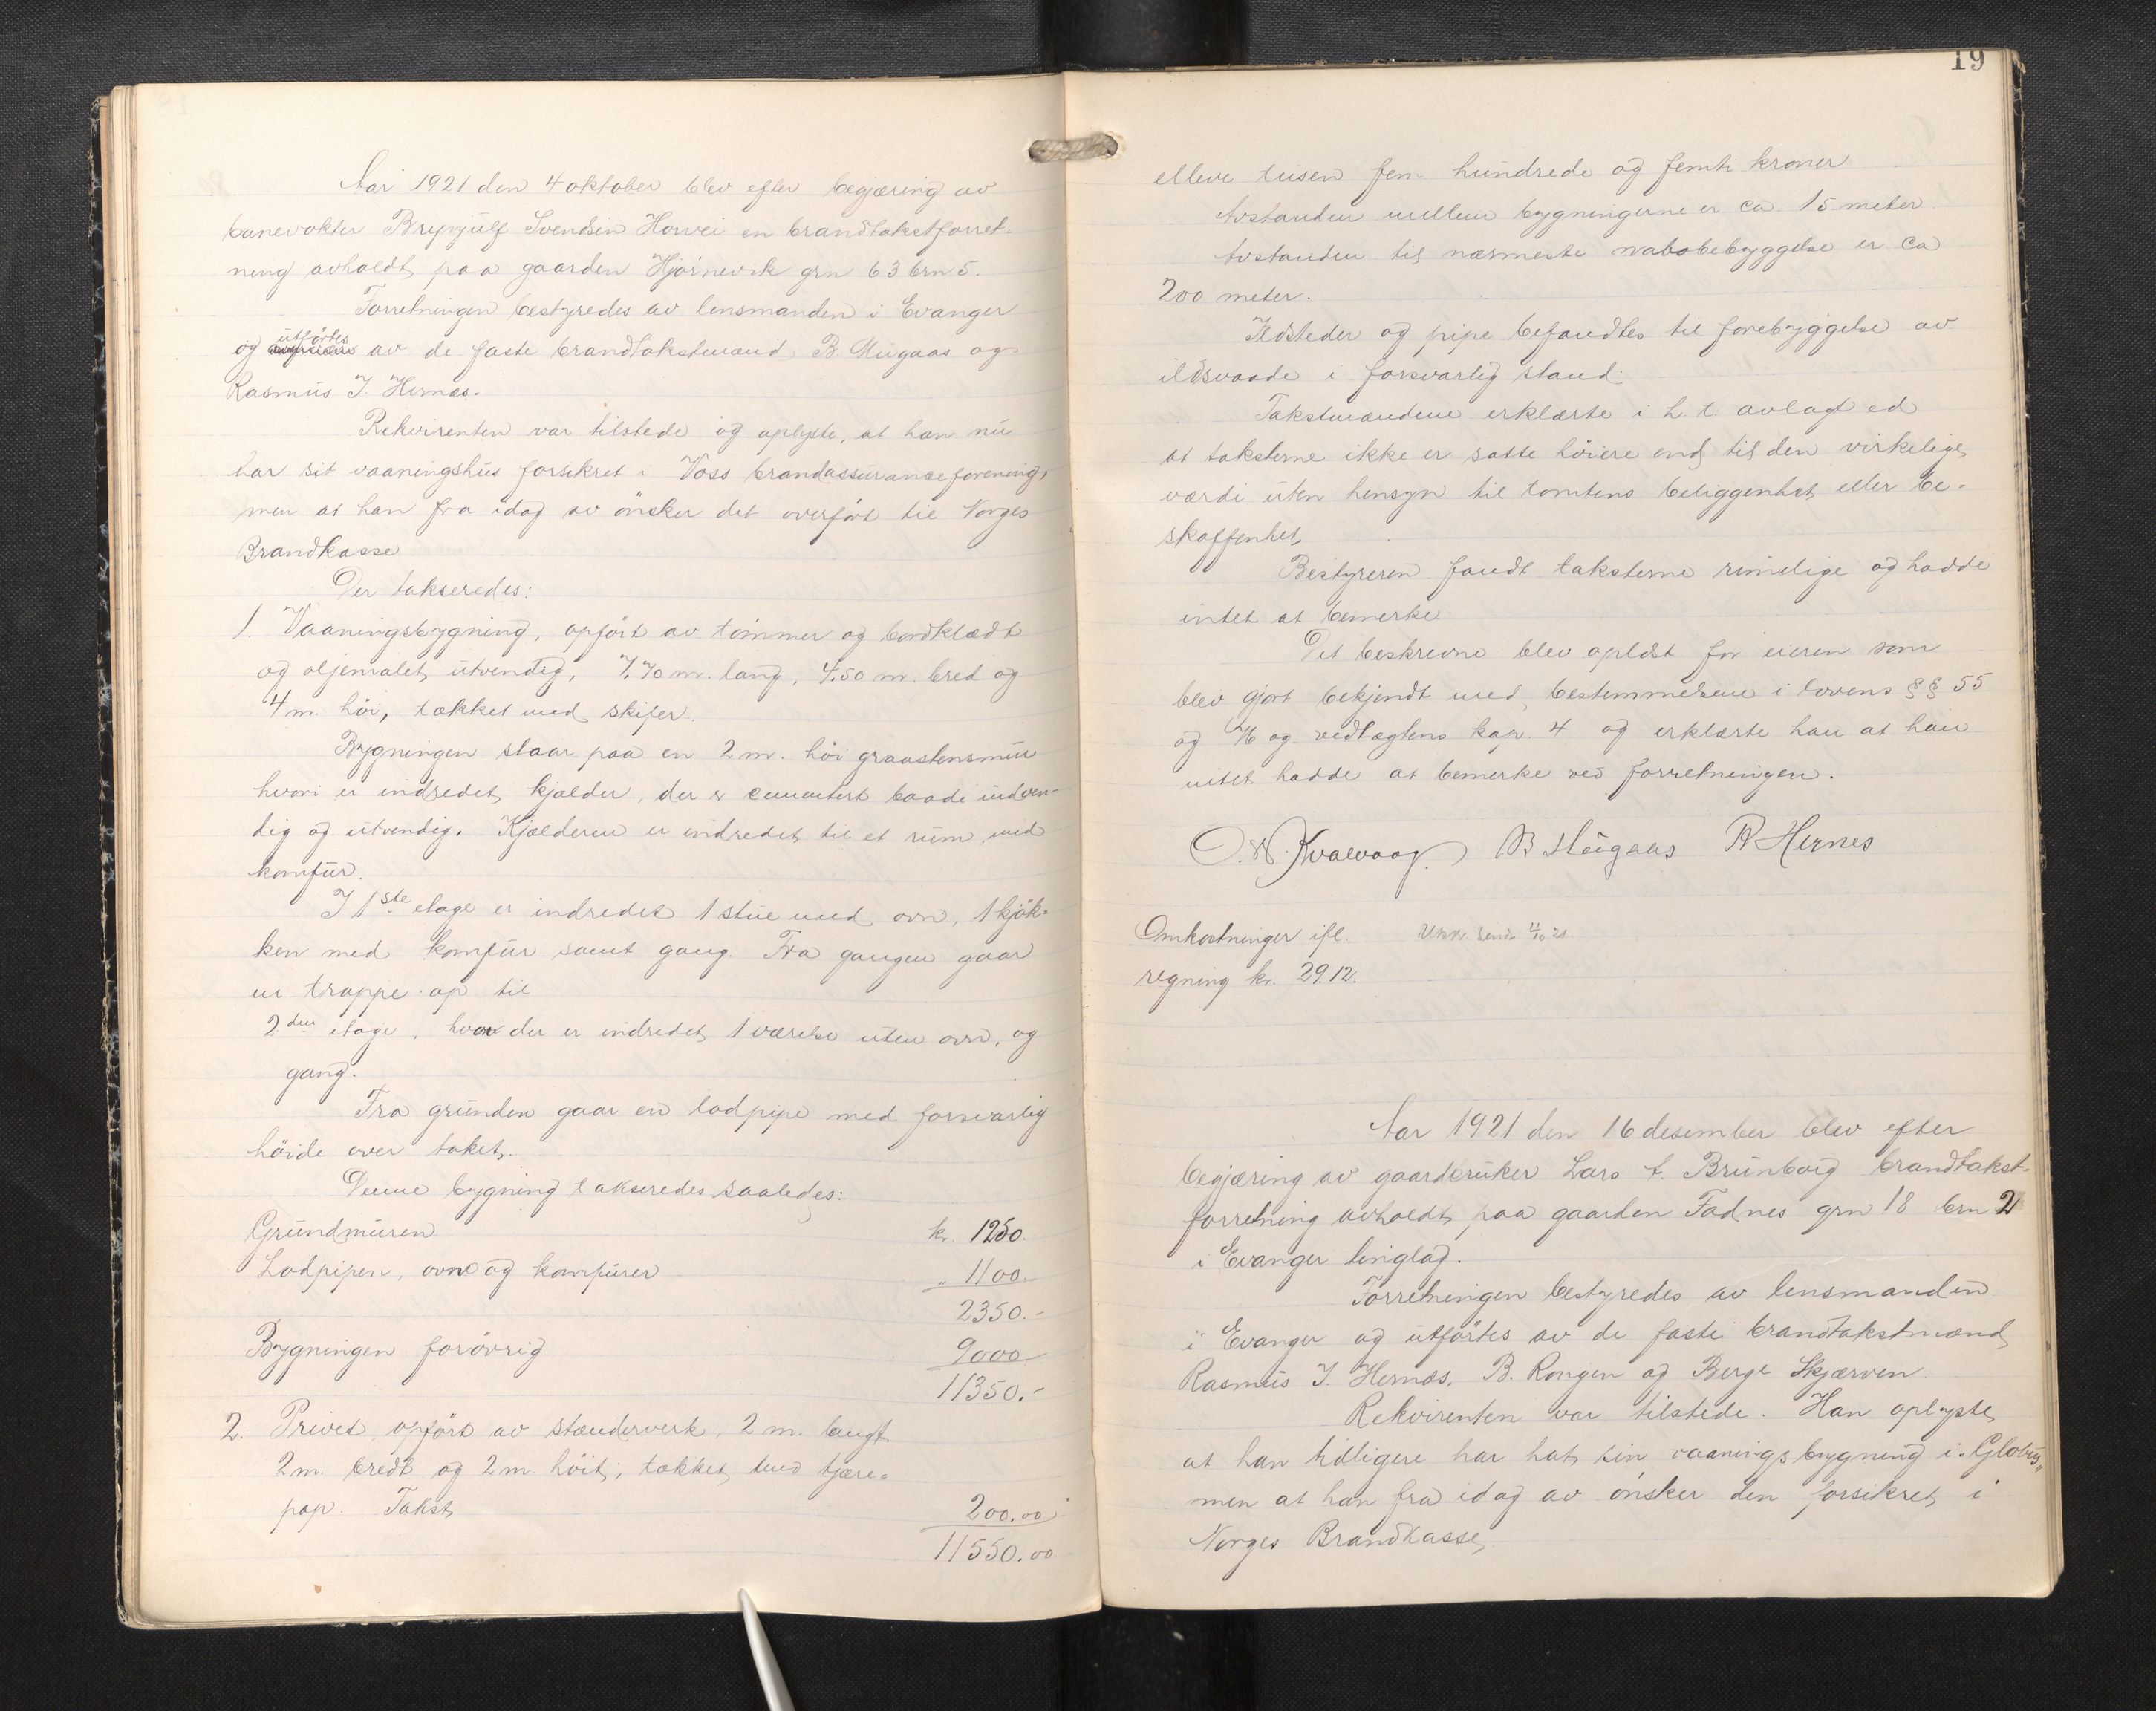 Aar 1921 den 4 oktober blev efter begjæring av
banevokter Brynjulf Svendsen Horvei en brandtakstforret-
ning avholdt paa gaarden Hjørnevik grn 63 brn 5.
Forretningen bestyredes av lensmanden i Evanger
og utförtes av de faste brandtakstmænd, B Mugaas og
Rasmus J. Hernæs.
Rekvirenten var tilstede og oplyste, at han nu
har sit vaaningshus forsikret i Voss brandassuranceforening,
men at han fra idag av önsker det overfört til Norges
Brandkasse
Der takseredes:
1. Vaaningsbygning, opfört av tömmer og bordklædt
og oljemalet utvendig, 7.70 m. lang, 4.50 m. bred og
4 m. höi, tækket med skifer.
Bygningen staar paa en 2 m. höi graastensmur
hvori er indredet kjælder, der er cementert baade indven-
dig og utvendig. Kjælderen er indredet til et rum med
komfur.
I 1ste etage er indredet 1 stue med ovn, 1 kjök-
ken med komfur samt gang. Fra gangen gaar
en trappe op til
2den etage, hvor der er indredet 1 værelse uten ovn, og
gang.
Fra grunden gaar en lodpipe med forsvarlig
höide over taket.
Denne bygning takseredes saaledes:
Grundmuren kr. 1250.
Lodpipen, ovn og komfurer " 1100.
2350.-
Bygningen forövrig 9000.
11350.-
2. Privet, opfört av stænderverk, 2 m. langt
2 m. bredt og 2 m. höit, tækket med tjære-
pap. Takst 200.00
11550.00
19
elleve tusen fem hundrede og femti kroner
Avstanden mellem bygningerne er ca. 15 meter
Avstanden til nærmeste nabobebyggelse er ca
200 meter.
Ildsteder og pipe befandtes til forebyggelse av
ildsvaade i forsvarlig stand.
Takstmændene erklærte i h. t. avlagt ed
at taksterne ikke er satte höiere end til den virkelige
værdi uten hensyn til tomtens beliggenhet eller be-
skaffenhet.
Bestyreren fandt taksterne rimelige og hadde
intet at bemerke
Det beskrevne blev oplæst for eieren som
blev gjort bekjendt med bestemmelsene i lovens §§ 55
og 76 og vedtægtens kap. 4 og erklærte han at han
intet hadde at bemerke ved forretningen.
O. N. Kvalvaag. B Mugaas R Hernes
Omkostninger ifl.
regning kr. 29.12.
Aar 1921 den 16 desember blev efter
begjæring av gaardbruker Lars L. Brunborg brandtakst-
forretning avholdt paa gaarden Fadnes grn 18 brn 2
i Evanger tinglag.
Forretningen bestyredes av lensmanden
i Evanger og utförtes av de faste brandtakstmænd
Rasmus J. Hernæs, B. Rongen og Berge Skjærven.
Rekvirenten var tilstede. Han oplyste
at han tidligere har hat sin vaaningsbygning i "Globus"
men at han fra idag av önsker den forsikret i
Norges Brandkasse,